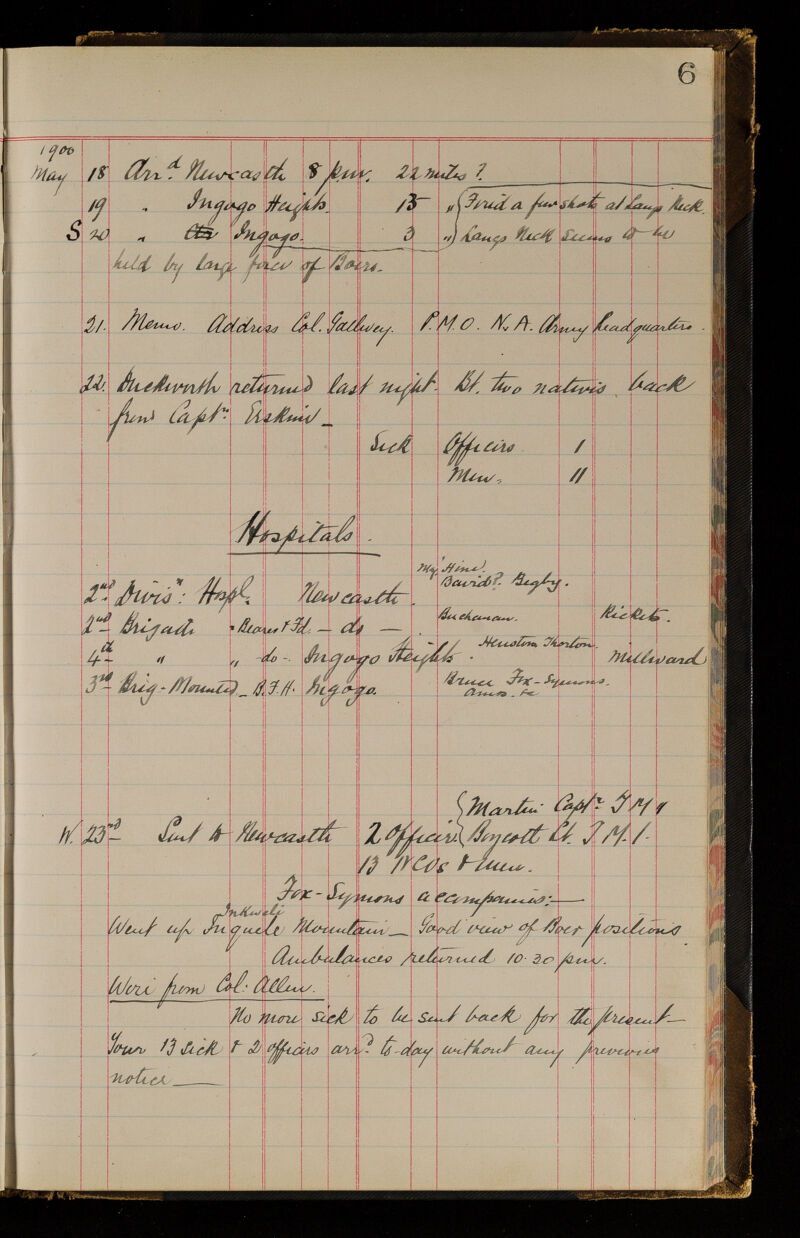 6
1900
May 18 Arrd. Newcastle 8 p.m. 22 miles?
19 " Ingogo Heights. 15 " Fired a few shots at Langs Neck.
S 20 " Ingogo. 3 " Langs Neck seems to be
held by large force of Boers.
21. Memo. Address Col. Gallwey. P.M.O. N.A. Army headquarters.
22. Duckworth returned last night. Bt. two natives back
from Captn. Erskine —
Sick Officers 1
Men. 11
Hospitals.
2nd Divisn: Hospl. Newcastle. Maj. Hine. David?. Begby.
2nd Brigade " Bearer & Fd. — do — Buchanan. Rickets.
4th " " do - Ingogo Heights. Heuston Thorton. Millward
3rd Brig - Mounted - B.F.H. Ingogo. Bruce Fox-Symons.
Amos. &c
Martin Captn. T M I
W. 23rd Sent to Newcastle 2 Officers Boycott Lt. T. M. I.
13 NCOs & Men.
Fox-Symons accompanies: —
Inkweli
Went up Inquele Mountain — Good view of Boer positions.
Ambulances returned 10.30 p.m.
Wire from Col: Allen.
No more sick to be sent back for the present —
Your 13 sick & 2 officers arrd. to-day without any previous
notice —